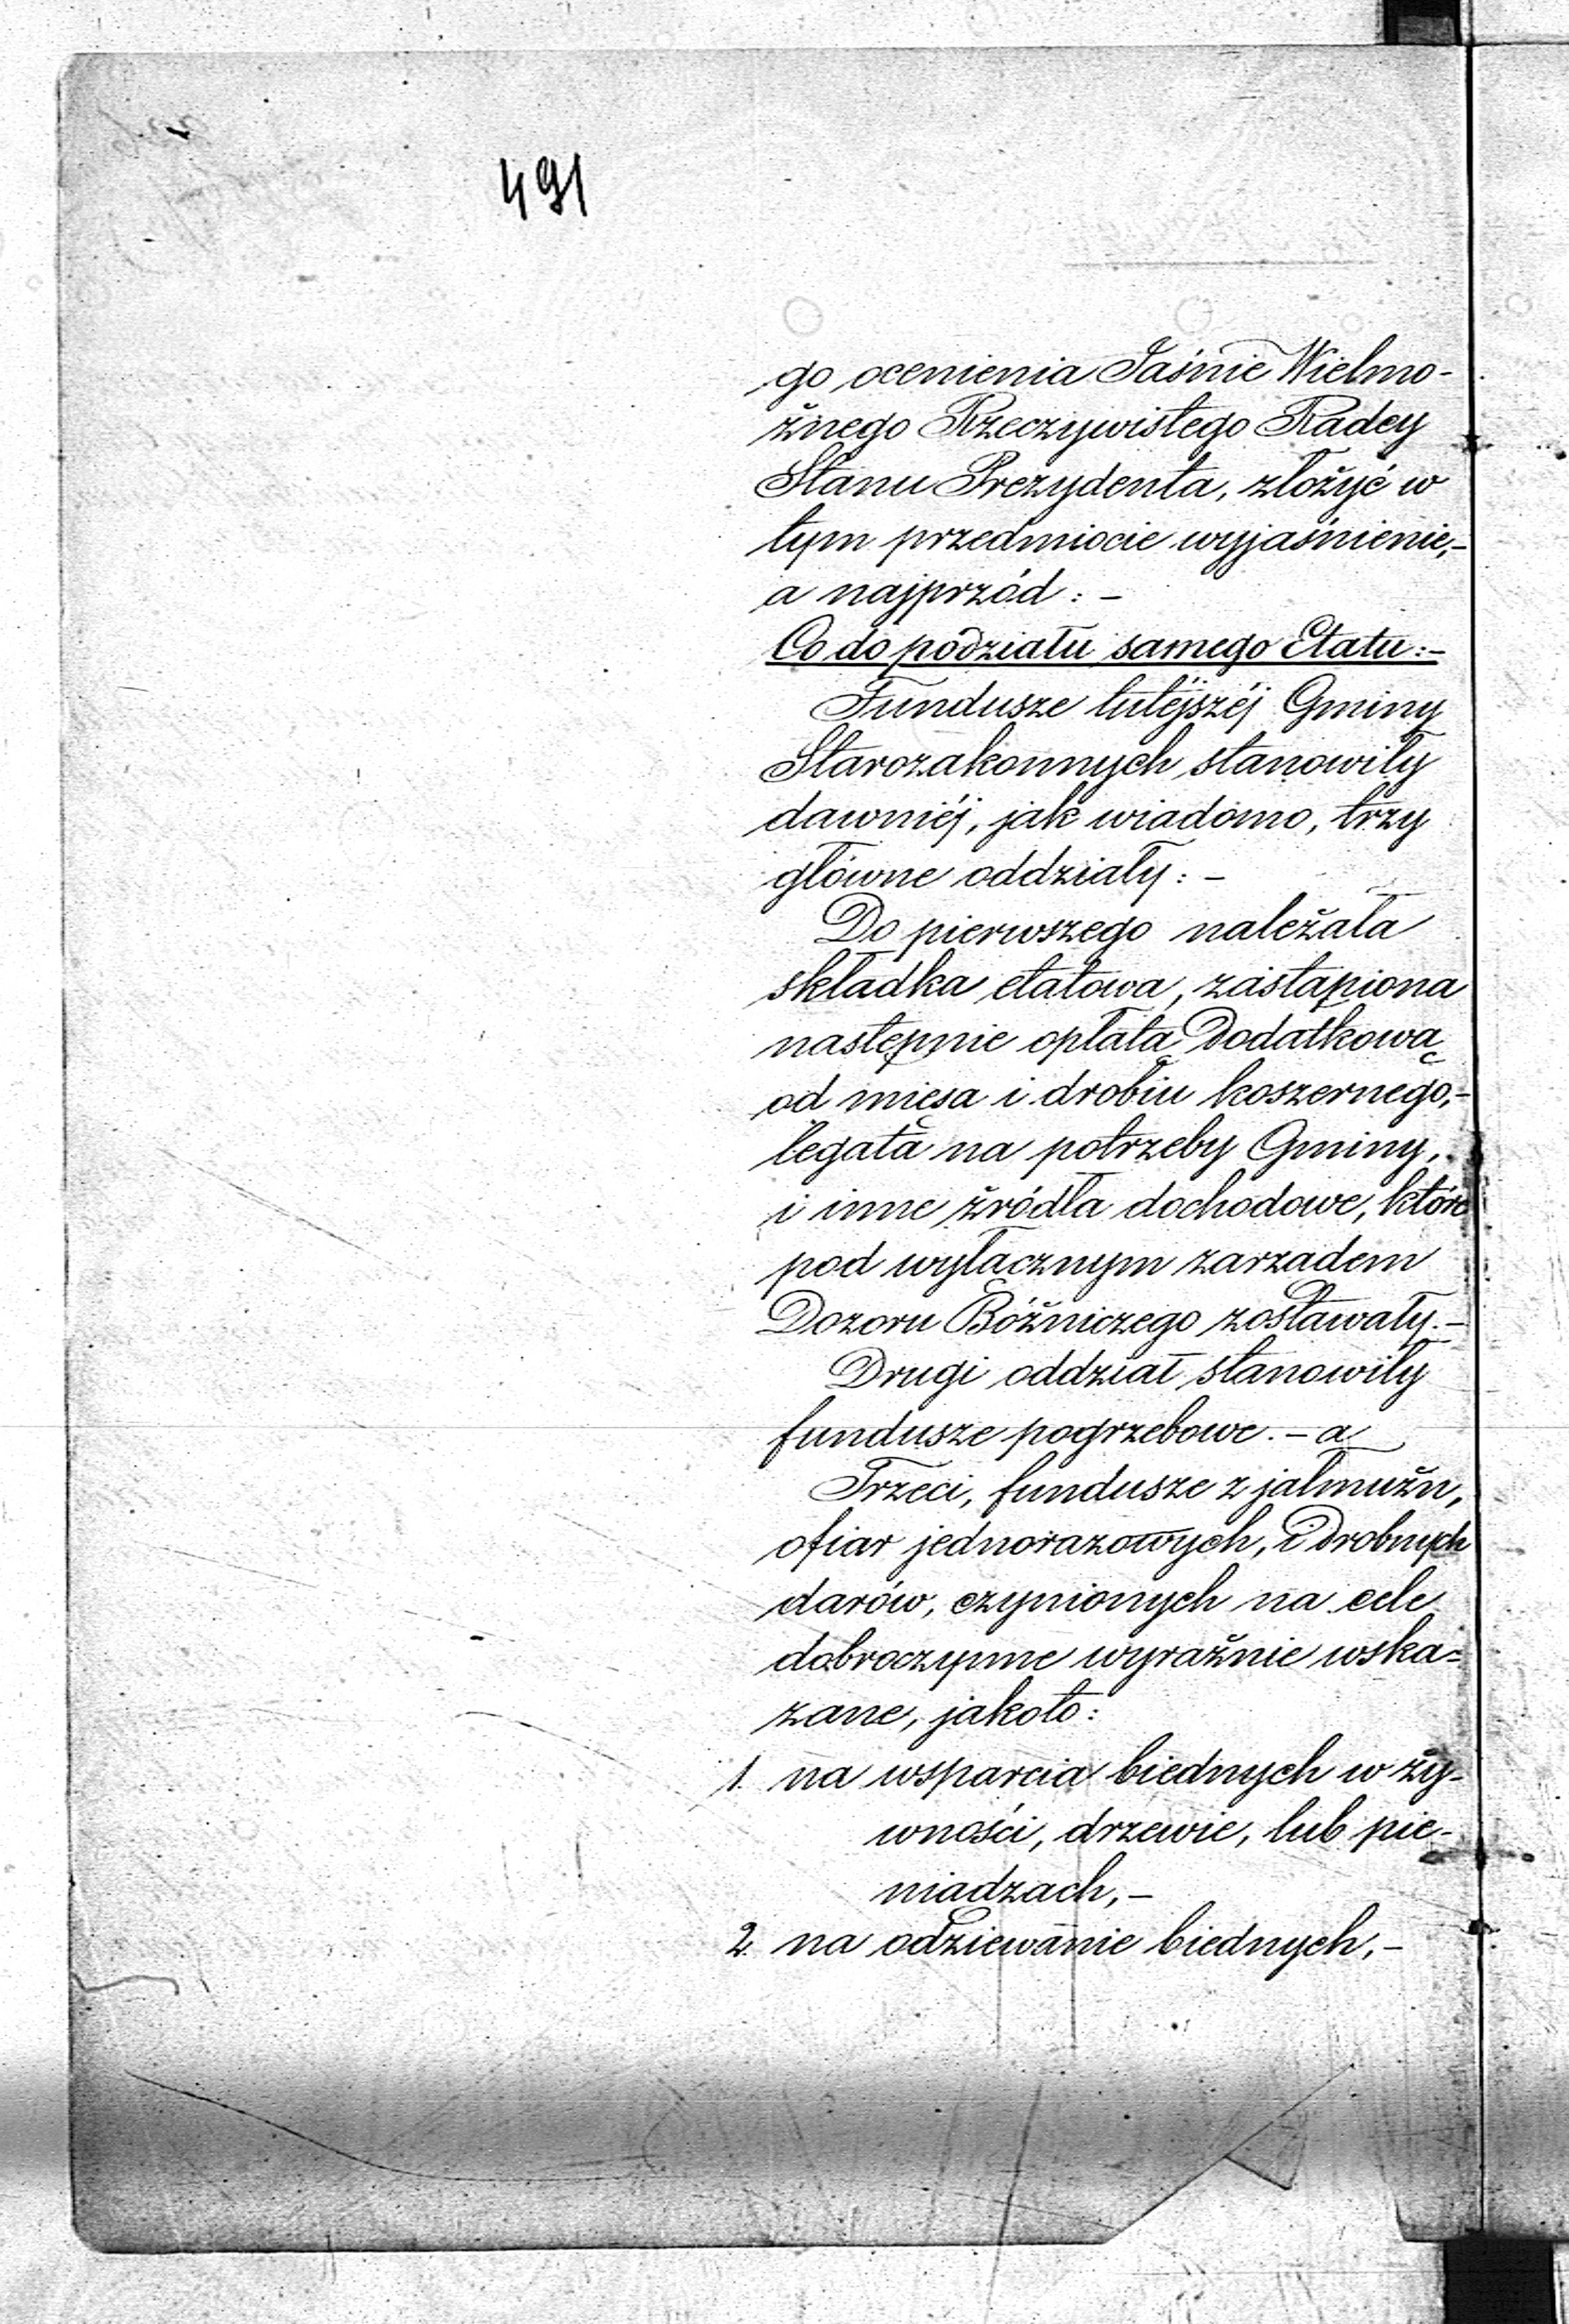 491
go ocenienia Jaśnie Wielmo-
żnego Rzeczywistego Radcy
Stanu Prezydenta, złożyć w
tym przedmiocie wyjaśnienie,-
a najprzód: -
Co do podziału samego Etatu:-
Fundusze tutéjszéj Gminy
Starozakonnych stanowiły
dawniéj, jak wiadomo, trzy
główne oddziały: -
Do pierwszego należała
składka etatowa, zastąpiona
następnie opłatą dodatkową
od mięsa i drobiu koszernego,-
legata na potrzeby Gminy,
i inne źródła dochodowe, które
pod wyłącznym zarządem
Dozoru Bóżniczego zostawały.-
Drugi oddział stanowiły
fundusze pogrzebowe. - a
Trzeci, fundusze z jałmużn,
ofiar jednorazowych, i drobnych
darów, czynionych na cele
dobroczynne wyraźnie wska=
zane, jakoto:
1. na wsparcia biednych w ży-
wności, drzewie, lub pie-
niądzach, -
2. na odziewanie biednych, -